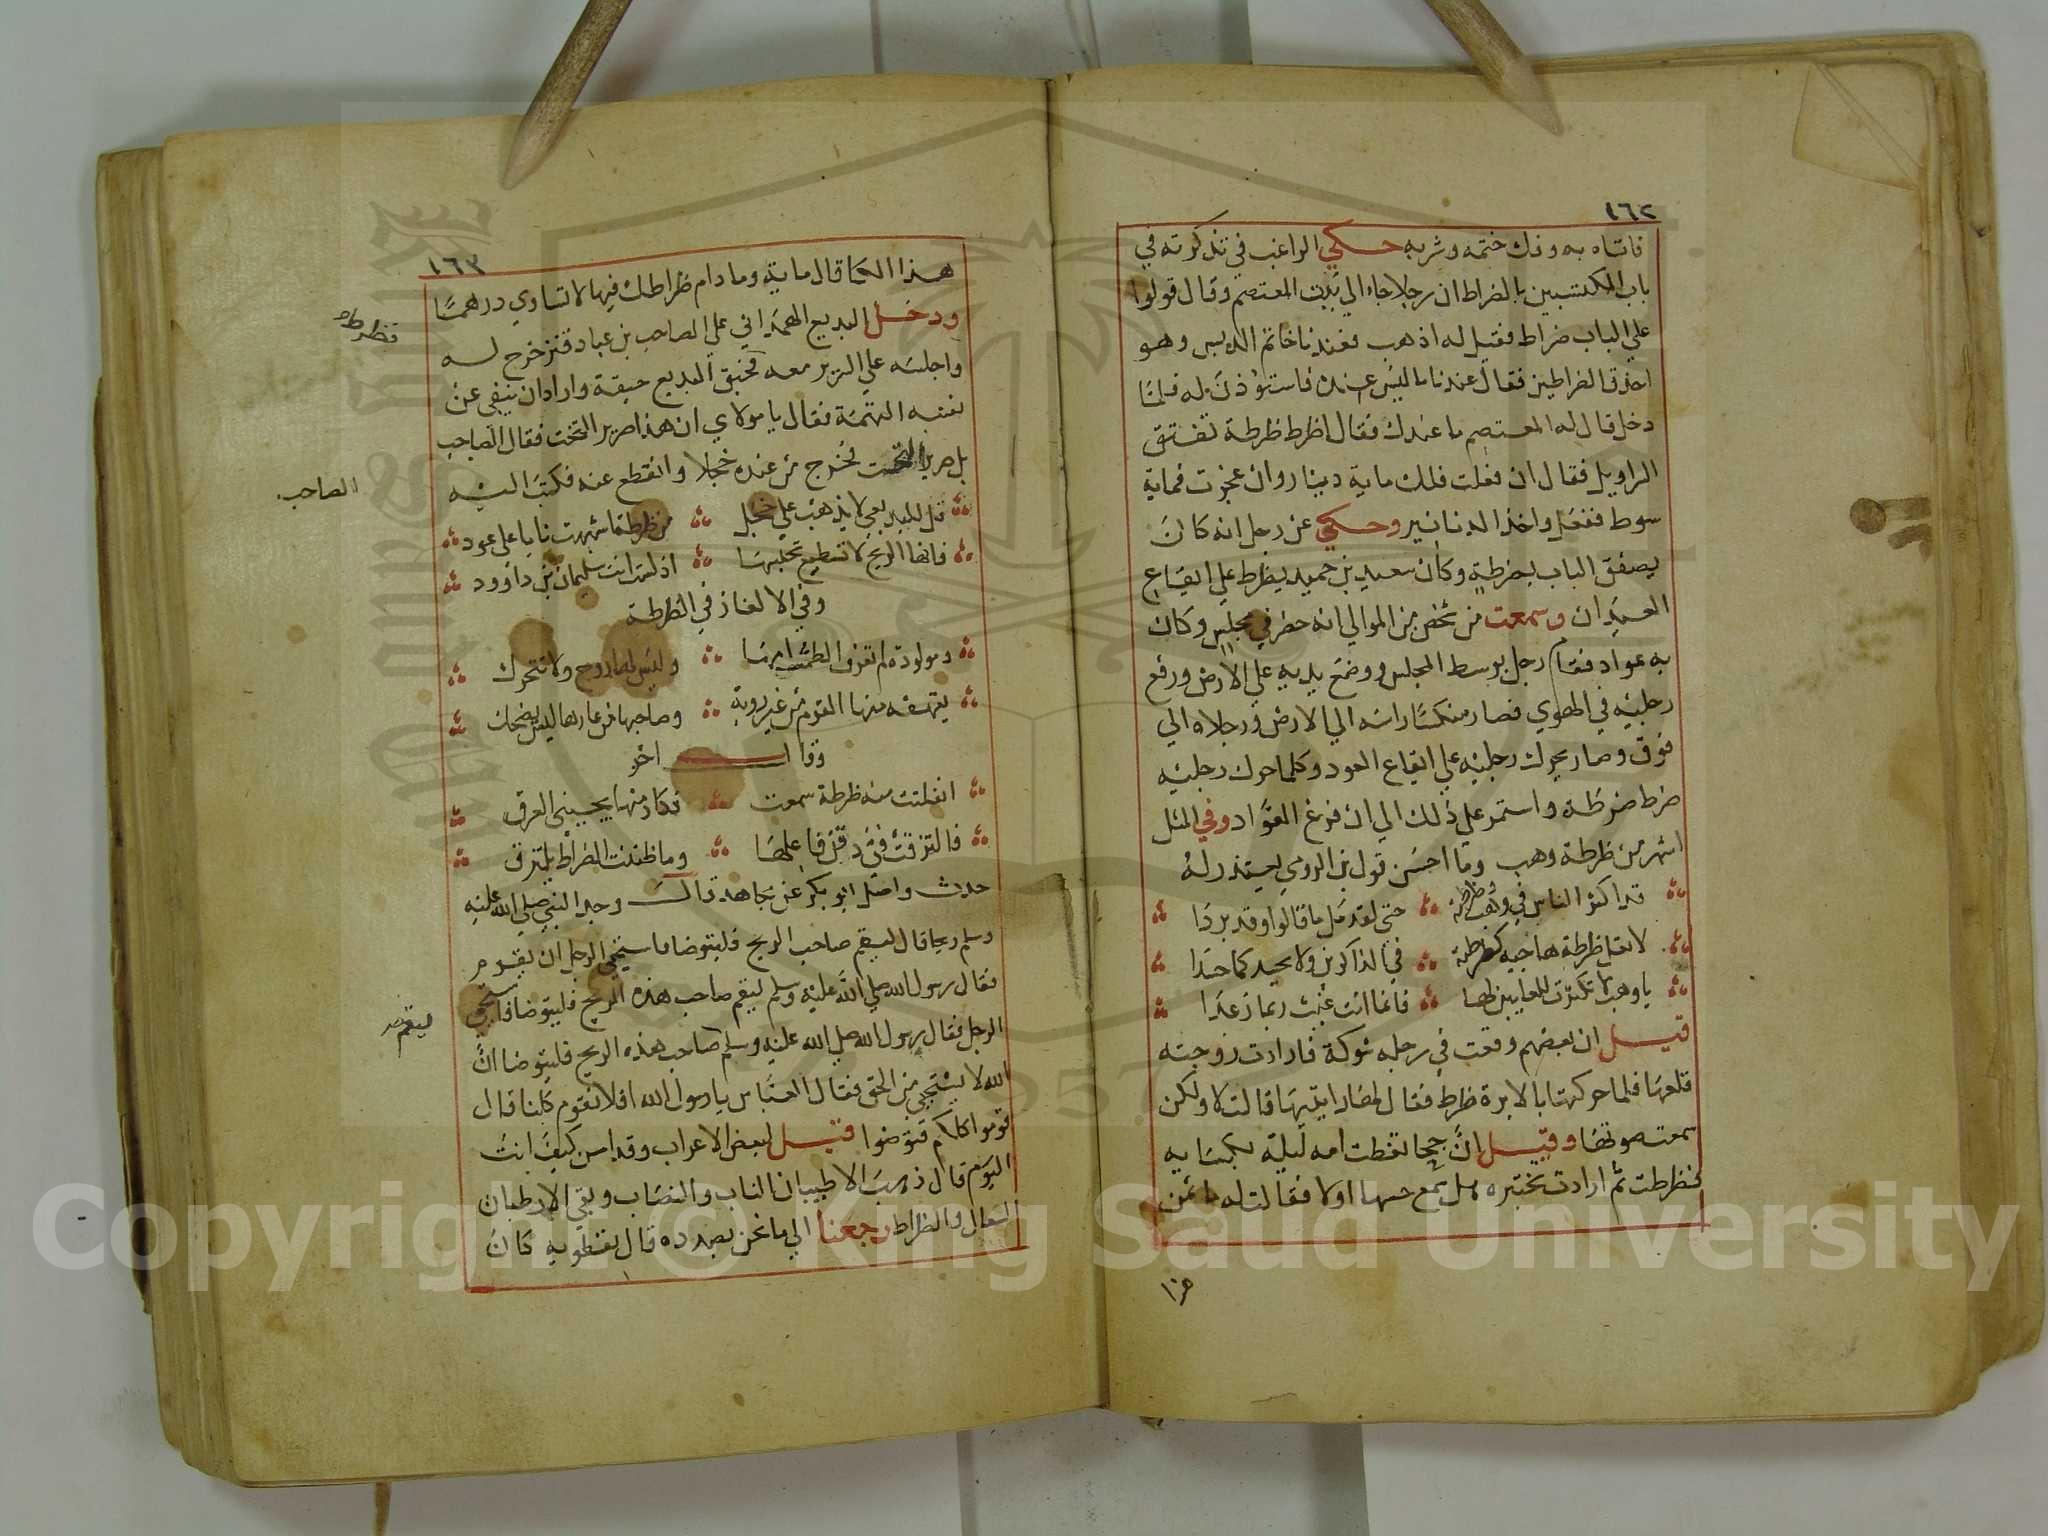 ١٦٢
فاتاه به وفك ختمه وشربه حكي الراغب في تذكرته في
باب المكتسبين بالضراط ان رجلا جاء الي بيت المعتصم وقال قولوا
علي الباب ضراط فقيل له اذهب فعندنا خاتم الدبس وهو
احذق الضراطين فقال عندنا ما ليس عنده فاستؤذن له فلما
دخل قال له المعتصم ما عندك فقال اظرط ظرطة تفتق
السراويل فقال ان فعلت فلك ماية دينار وان عجزت فماية
سوط ففعل واخذ الدنانير وحكي عن رجل انه كان
يصفق الباب بضرطة وكان سعيد بن حميد يظرط علي ايقاع
العيدان وسمعت من شخص من الموالي انه حضر في مجلس وكان
به عواد فقام رجل بوسط المجلس ووضع يديه علي الارض ورفع
رجليه في الهوي فصار منكسا راسه الي الارض ورجلاه الي
فوق وصار يحرك رجليه علي ايقاع العود وكلما حرك رجليه
ضرط ضرطة واستمر علي ذلك الي ان فرغ العواد وفي المثل
اشهر من ظرطة وهب وما احسن قول بن الرومي يعتذر له
قد اكثر الناس في وهب وظرطته حتي لقد مل ما قالوا وقد بردا
لا تعل ظرطة هاجيه كظرطته في الذاكرين ولا يحسد كما حسدا
يا وهب لا تكترث للعايبين لها فانما انت غيث ربما رعدا
قيل ان بعضهم وقعت في رجله شوكة فارادت زوجته
قلعها فلما حركتها بالابرة ظرط فقال لها رايتيها قالت لا ولكن
سمعت صوتها وقيل ان جحا تغطت امه ليلة بكسايه
فظرطت ثم ارادت تختبره هل سمع حسها اولا فقالت له ما ثمن
هذا
١٦٣
هذا الكسا قال ماية وما دام ظراطك فيها لا تساوي درهما
ودخل البديع الهمذاني علي الصاحب بن عباد فتزحزح له
واجلسه علي السرير معه فحبق البديع حبقة واراد ان ينفي عن
نفسه التهمة فقال يا مولاي ان هذا صرير التخت فقال الصاحب
بل صرير التحت فخرج من عنده خجلا وانقطع عنه فكتب اليه
الصاحب
قل للبديعي لا يذهب علي خجل من ظرطة اشبهت نايا علي عود
فانها الريح لا تستطيع تحبسها اذ لست انت سليمان بن داوود
وفي الالغاز في الظرطة
ومولودة لم تعرف الطمث امها وليس لها روح ولا تتحرك
يقهقه منها القوم من غير رؤية وصاحبها من عارها ليس يضحك
وقال اخر
انفلتت منه ظرطة سمعت فكاد منها يجيبني العرق
فالتزقت في دقن قاعلها وما ظننت الضراط يلتزق
حدث واصل ابو بكر عن مجاهد قال وجد النبي صلي الله عليه
وسلم ريحا قال ليقم صاحب الريح فليتوضا فاستحيي الرجل ان يقوم
فقال رسول الله صلي الله عليه وسلم ليقم صاحب هذه الريح فليتوضا فاستحيي
الرجل فقال رسول الله صلي الله عليه وسلم صاحب هذه الريح فليتوضا ان
ليقم
الله لا يستحيي من الحق فقال العباس يا رسول الله افلا نقوم كلنا قال
قوموا كلكم فتوضوا قيل لبعض الاعراب وقد اسن كيف انت
اليوم قال ذهب الاطيبان الناب والنصاب وبقي الارطبان
السعال والظراط رجعنا الي ما نحن بصدده قال نفطويه كان